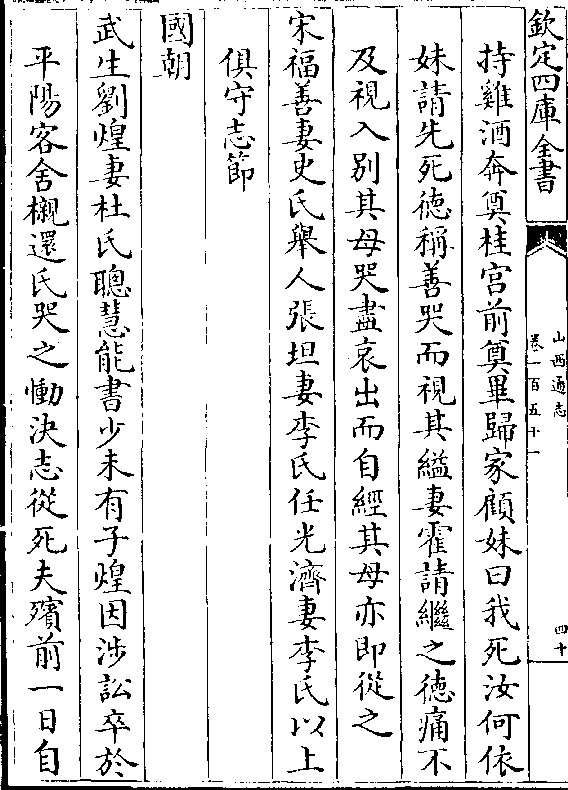 欽定四庫全書
山西通志
卷一百五十一
四十
持雞酒奔奠桂宫前奠畢歸家顧妹曰我死汝何依
妹請先死徳稱善哭而視其縊妻霍請繼之徳痛不
及視入别其母哭盡哀出而自經其母亦即從之
宋福善妻史氏舉人張坦妻李氏任光濟妻李氏以上
俱守志節
國朝
武生劉煌妻杜氏聰慧能書少未有子煌因涉訟卒於
平陽客舍櫬還氏哭之慟決志從死夫殯前一日自